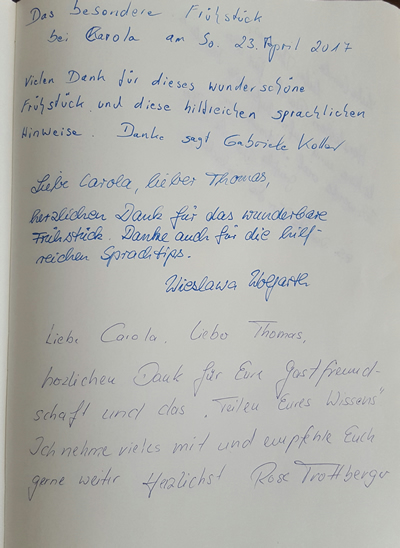 Das besondere Frühstück
bei Carola am So. 23. April 2017
Vielen Dank für dieses wunderschöne
Frühstück und diese hilfreichen sprachlichen
Hinweise. Danke sagt Gabriele Koller
Liebe Carola, lieber Thomas,
herzlichen Dank für das wunderbare
Frühstück. Danke auch für die hilf-
reichen Sprachtips.
Wieslawa Wolfarth
Liebe Carola, liebo Thomas,
herzlichen Dank für Eure Gastfreund-
schaft und das „Teilen Eures Wissens"
Ich nehme vieles mit und empfehle Euch
gerne weiter Herzlichst Rose Trottberger